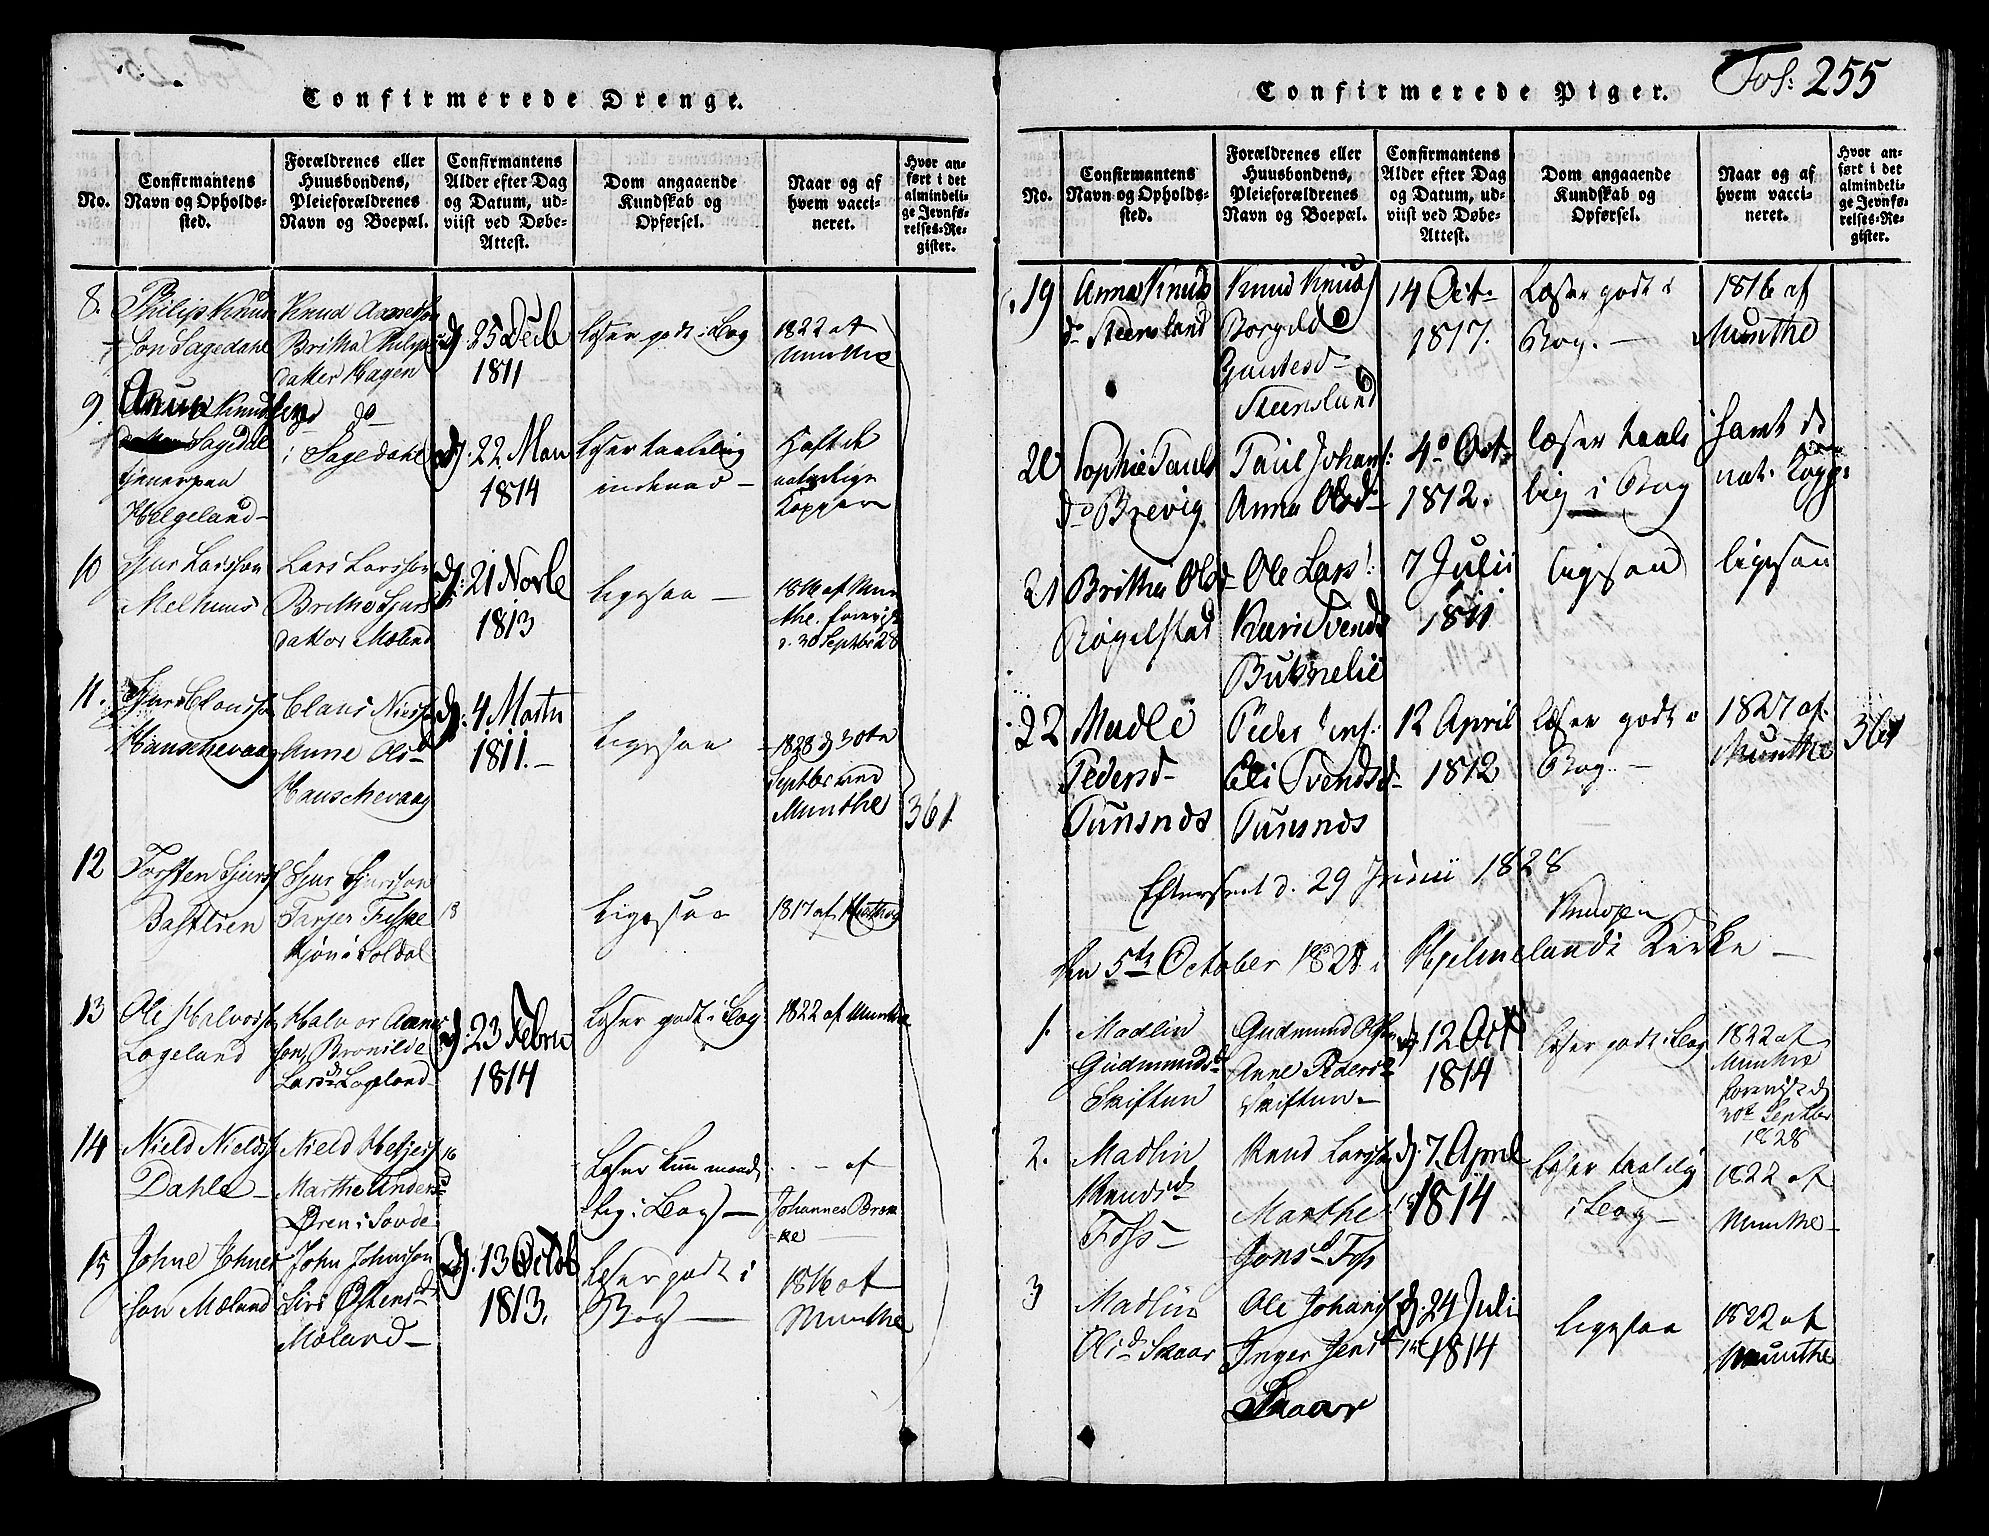 Fol: 255
Confirmerede Drenge.
No.
Confirmantens
Navn og Opholds-
sted.
Forældrenes eller
Huusbondens,
Pleieforældrenes
Navn og Boepæl.
Confirmantens
Alder efter Dag
og Datum, ud-
viist ved Døbe-
Attest.
Dom angaaende
Kundskab og
Opførsel.
Naar og af
hvem vacci-
neret.
Hvor an-
ført i det
almindeli-
ge Jevnfø-
relses-Re-
gister.
8.
Philip Knud
Son Sagedahl
Knud
Britha Philips
datter Hagen
25 Decb
1811
læser godt i Bog
1822 af
Munthe
9.
Knudsen
Sagedal
tjener paa
Helgeland
do
i Sagedahl
22 Mai
1814
læser taalelig
indenad
Haft de
naturlige
Kopper
10
Sjur Larsson
Melhuus
Lars Larsson
Britha Sjurs
datter Mæland
21 Novbe
1813
Ligesaa
1816 af Mun
the
d. 30 Septbr 28
11.
Sjur Clausso
Hauschevaag
Claus Nielss
Anne Olsd
Hauschevaag
4 Martii
1811.
Ligesaa
1828 d 30te
Septbr ved
Munthe
361
12
Torsten Sjurss
Bastlien
Sjur Sjursson
13
Ligesaa
1817 af
13
Ole Halvorss
Logeland
Halvor Aanen
son, Bronilde
Larsd Logeland
23 Febru
1814
læser godt i Bog
1822 af Munthe
14
Nield Nieldss
Dahle
Nield
Marthe Anders
Øren i Sovde
16
læser kun maade
lig i Bog
af
Johannes
15
Johne Johnes
son Mæland
John Johnsson
Siri Østensd
Mæland
13 Octob
1813.
læser godt i
Bog
1816 af
Munthe
Confirmerede Piger.
No.
Confirmantens
Navn og Opholds-
sted.
Forældrenes eller
Huusbondens,
Pleieforældrenes
Navn og Boepæl.
Confirmantens
Alder efter Dag
og Datum, ud-
viist ved Døbe-
Attest.
Dom angaaende
Kundskab og
Opførsel.
Naar og af
hvem vacci-
neret.
Hvor an-
ført i det
almindeli-
ge Jevnfø-
relses-Re-
gister.
19
Anna Knuds
d. Steensland
Knud Knuds
Borgild
Gautesd
Steensland
14 Oct.
1817.
Læser godt i
Bog.
1816 af
Munthe
20
Sophie Pauls
d. Brevig
Paul Johans:
Anna Olsd
4. Oct
1812.
læser taale
lig i Bog
haft de
nat. Kopp:
21
Britha Olsd
Røgelstad
Ole Lars:
Kari Svends
Buknelie
7 Julii
1811
ligesaa
ligesaa
22
Madle
Pedersd
Tunsnes
Peder Jens:
Eli Svendsd
Tunsnes
12 April
1812
læser godt i
Bog.
1827 af
Munthe
361
Efterseet d. 29 Junii 1828
Knudsen
Den 5te October 1828 i Hjelmelands Kirke
1.
Madlin
Gudmundsd
Skiftun
Gudmund Olsen
Anne Pedersd
Skiftun
12 Oct
1814
læser godt i Bog
1822 af
Munthe
d
30te Septbr
1828
2.
Madlin
Knudsd
Foss
Knud Larsson
Marthe
Jonsd Foss
7. April
1814
læser taalelig
i Bog
1822 af
Munthe
3
Madlin
Olsd Skaar
Ole Johans
Inger Jensd
Skaar
24 Juli
1814
ligesaa
1822 af
Munthe